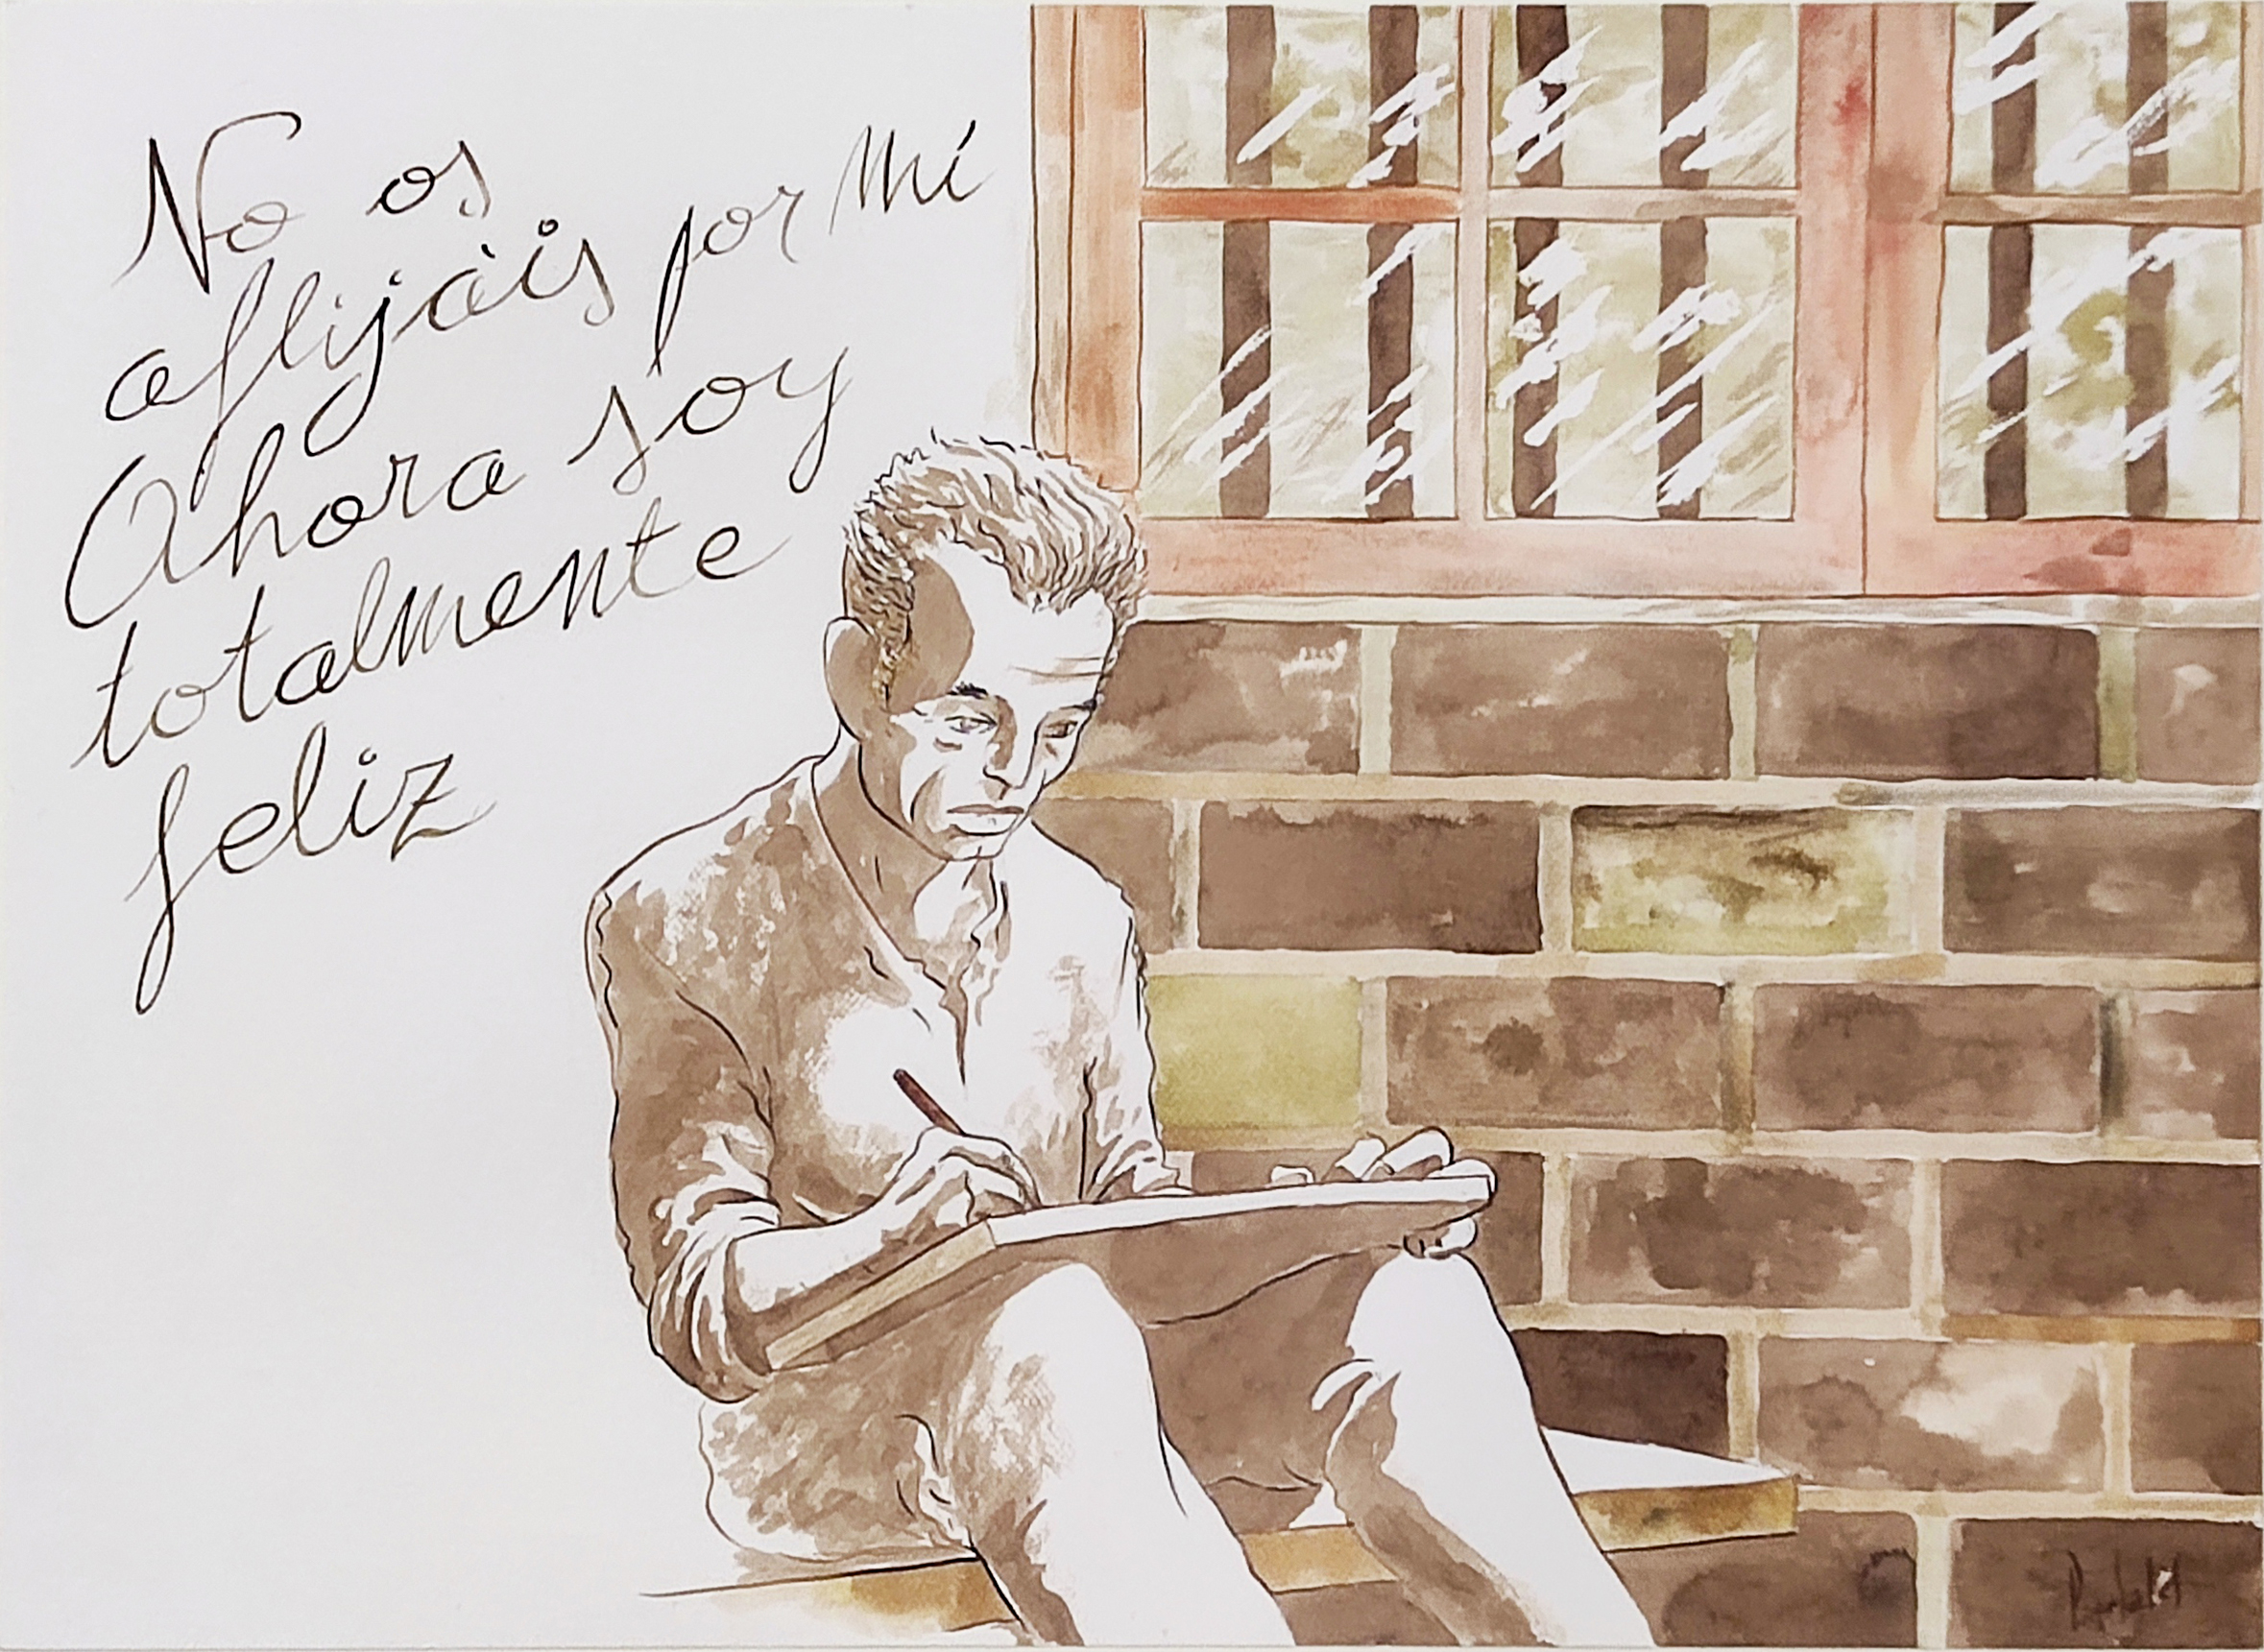 No os
aflijáis por mí
Ahora soy
totalmente
feliz